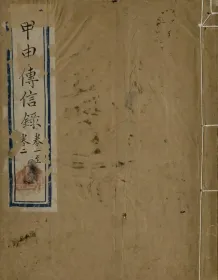 甲申傳信錄
卷一至
卷二